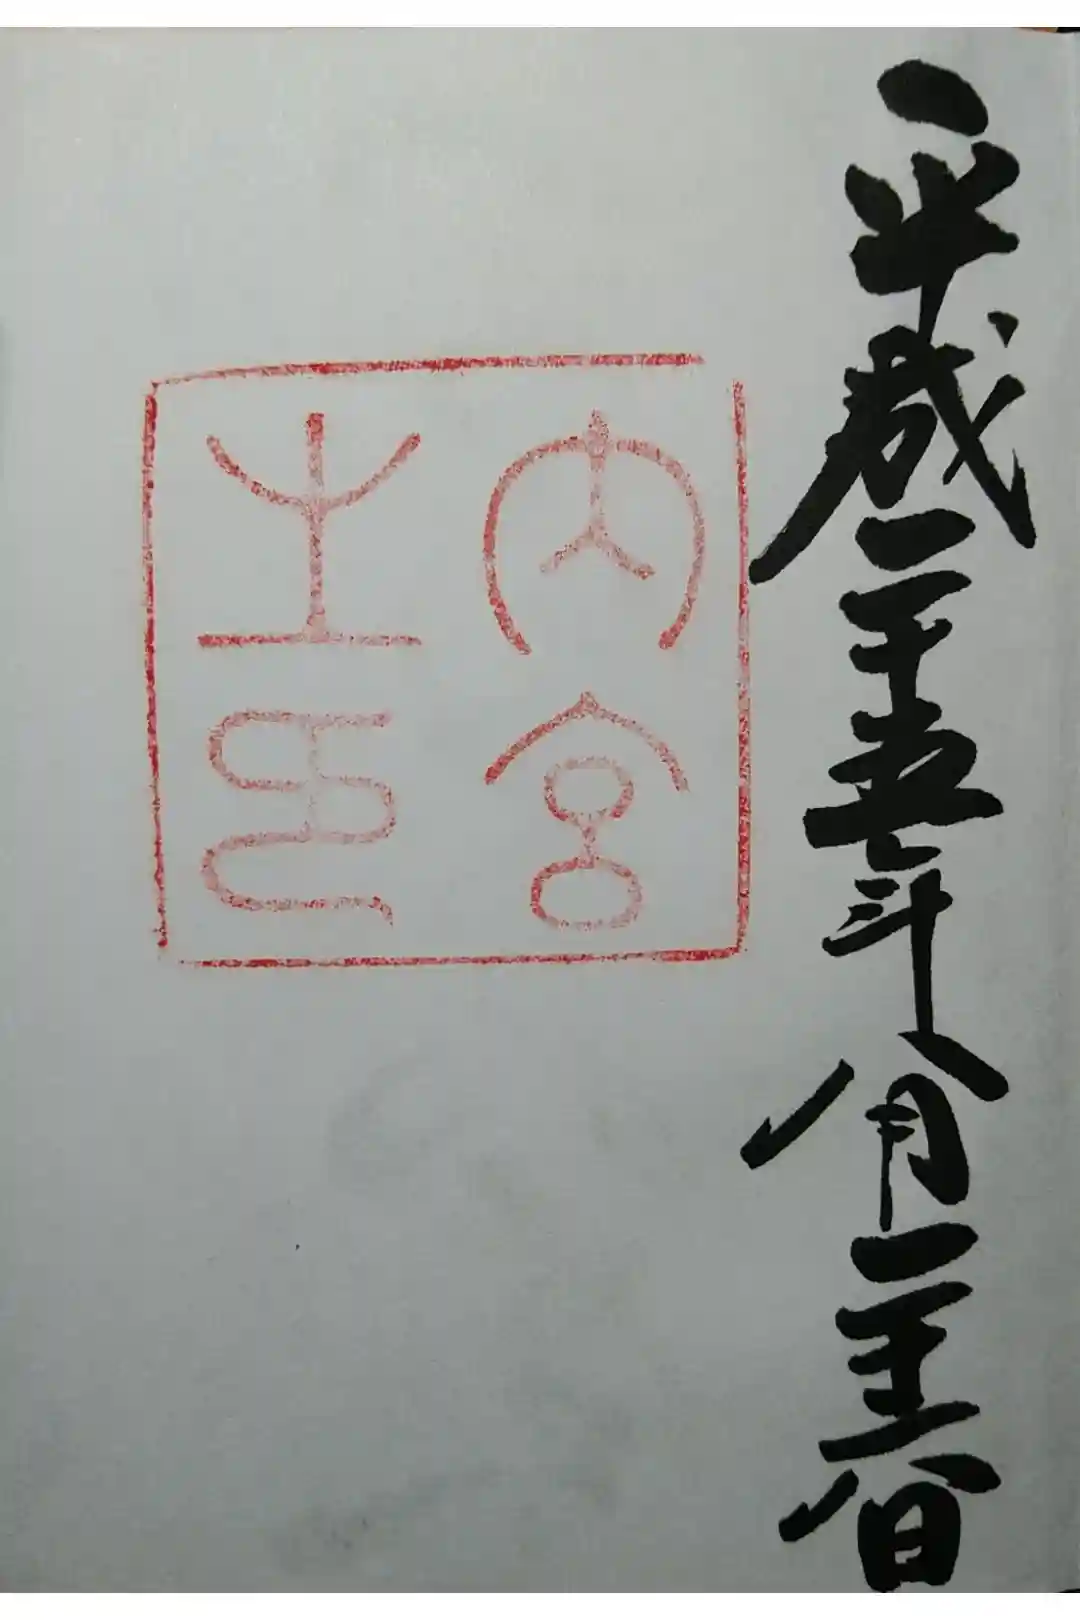 平成二十五年八月二十六日
内宮
之印